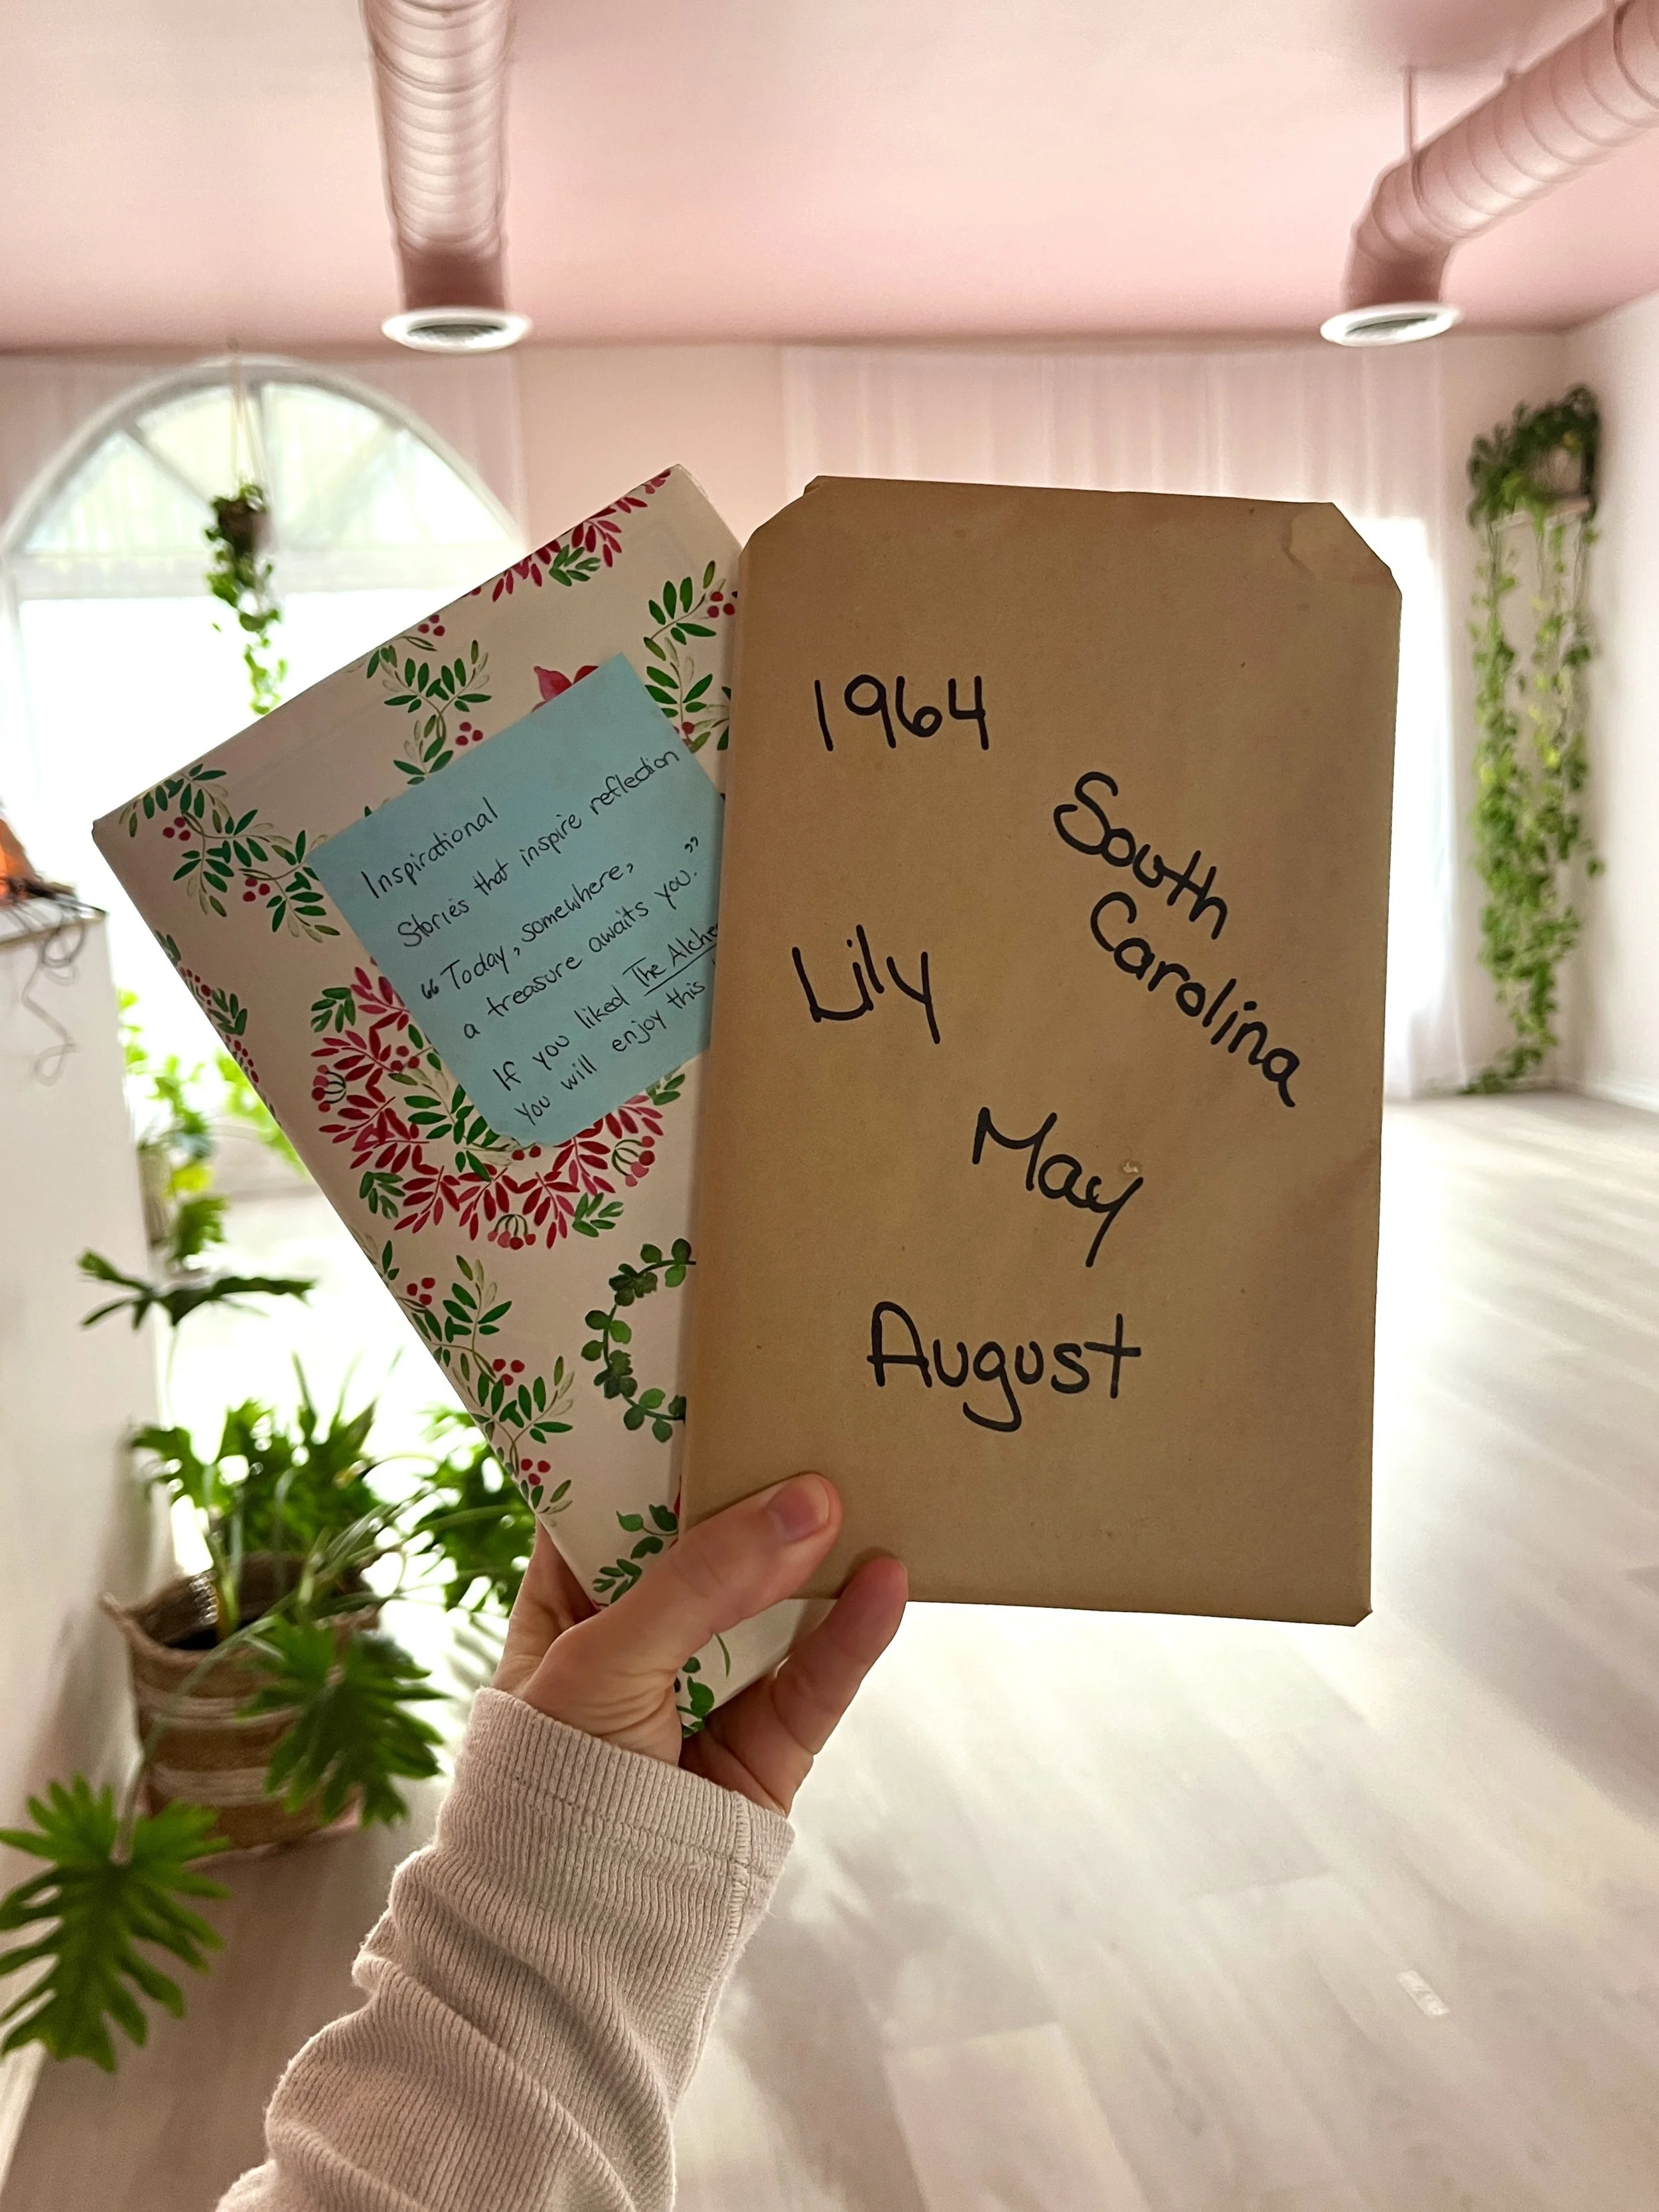 Inspirational
Stories that inspire reflection
"Today, somewhere,
a treasure awaits you."
If you liked The
You will enjoy this
1964
South
Carolina
Lily
May
August